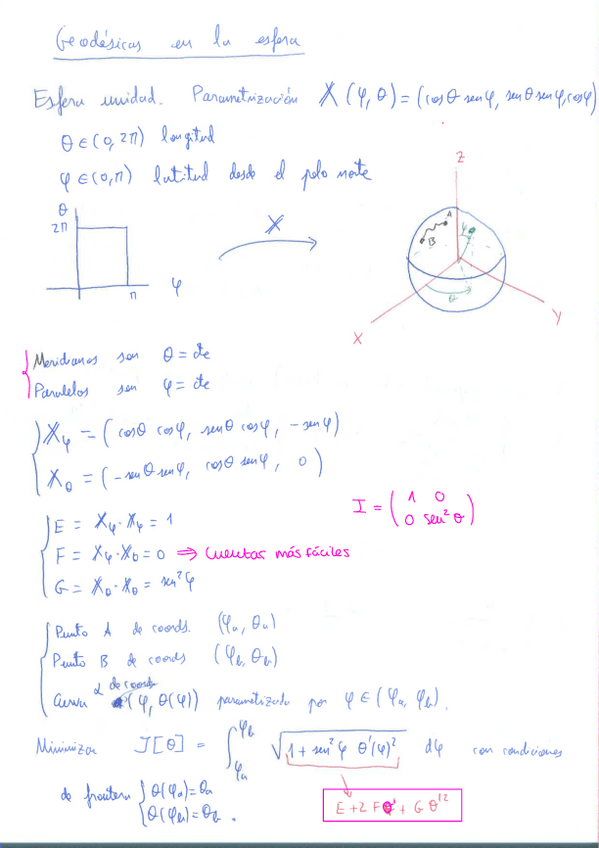 Geodésicas en la esfera
Esfera unidad. Parametrización X(φ,θ) = (cosθ senφ, senθ senφ, cosφ)
θ ∈ (0, 2π) longitud
φ ∈ (0, π) latitud desde el polo norte
θ
2π
π
φ
X
Z
A
B
φ
θ
X
Y
Meridianos son θ = cte
Paralelos son φ = cte
X_φ = (cosθ cosφ, senθ cosφ, -senφ)
X_θ = (-senθ senφ, cosθ senφ, 0)
I = (1 0
0 sen²θ)
E = X_φ · X_φ = 1
F = X_φ · X_θ = 0 ⇒ Cuentas más fáciles
G = X_θ · X_θ = sen²φ
Punto A de coords. (φ_a, θ_a)
Punto B de coords (φ_b, θ_b)
Curva α de coords (φ, θ(φ)) parametrizada por φ ∈ (φ_a, φ_b).
Minimizar J[θ] = ∫_{φ_a}^{φ_b} √(1 + sen²φ θ'(φ)²) dφ con condiciones
de frontera {θ(φ_a) = θ_a
θ(φ_b) = θ_b.
E + 2Fθ' + Gθ'²